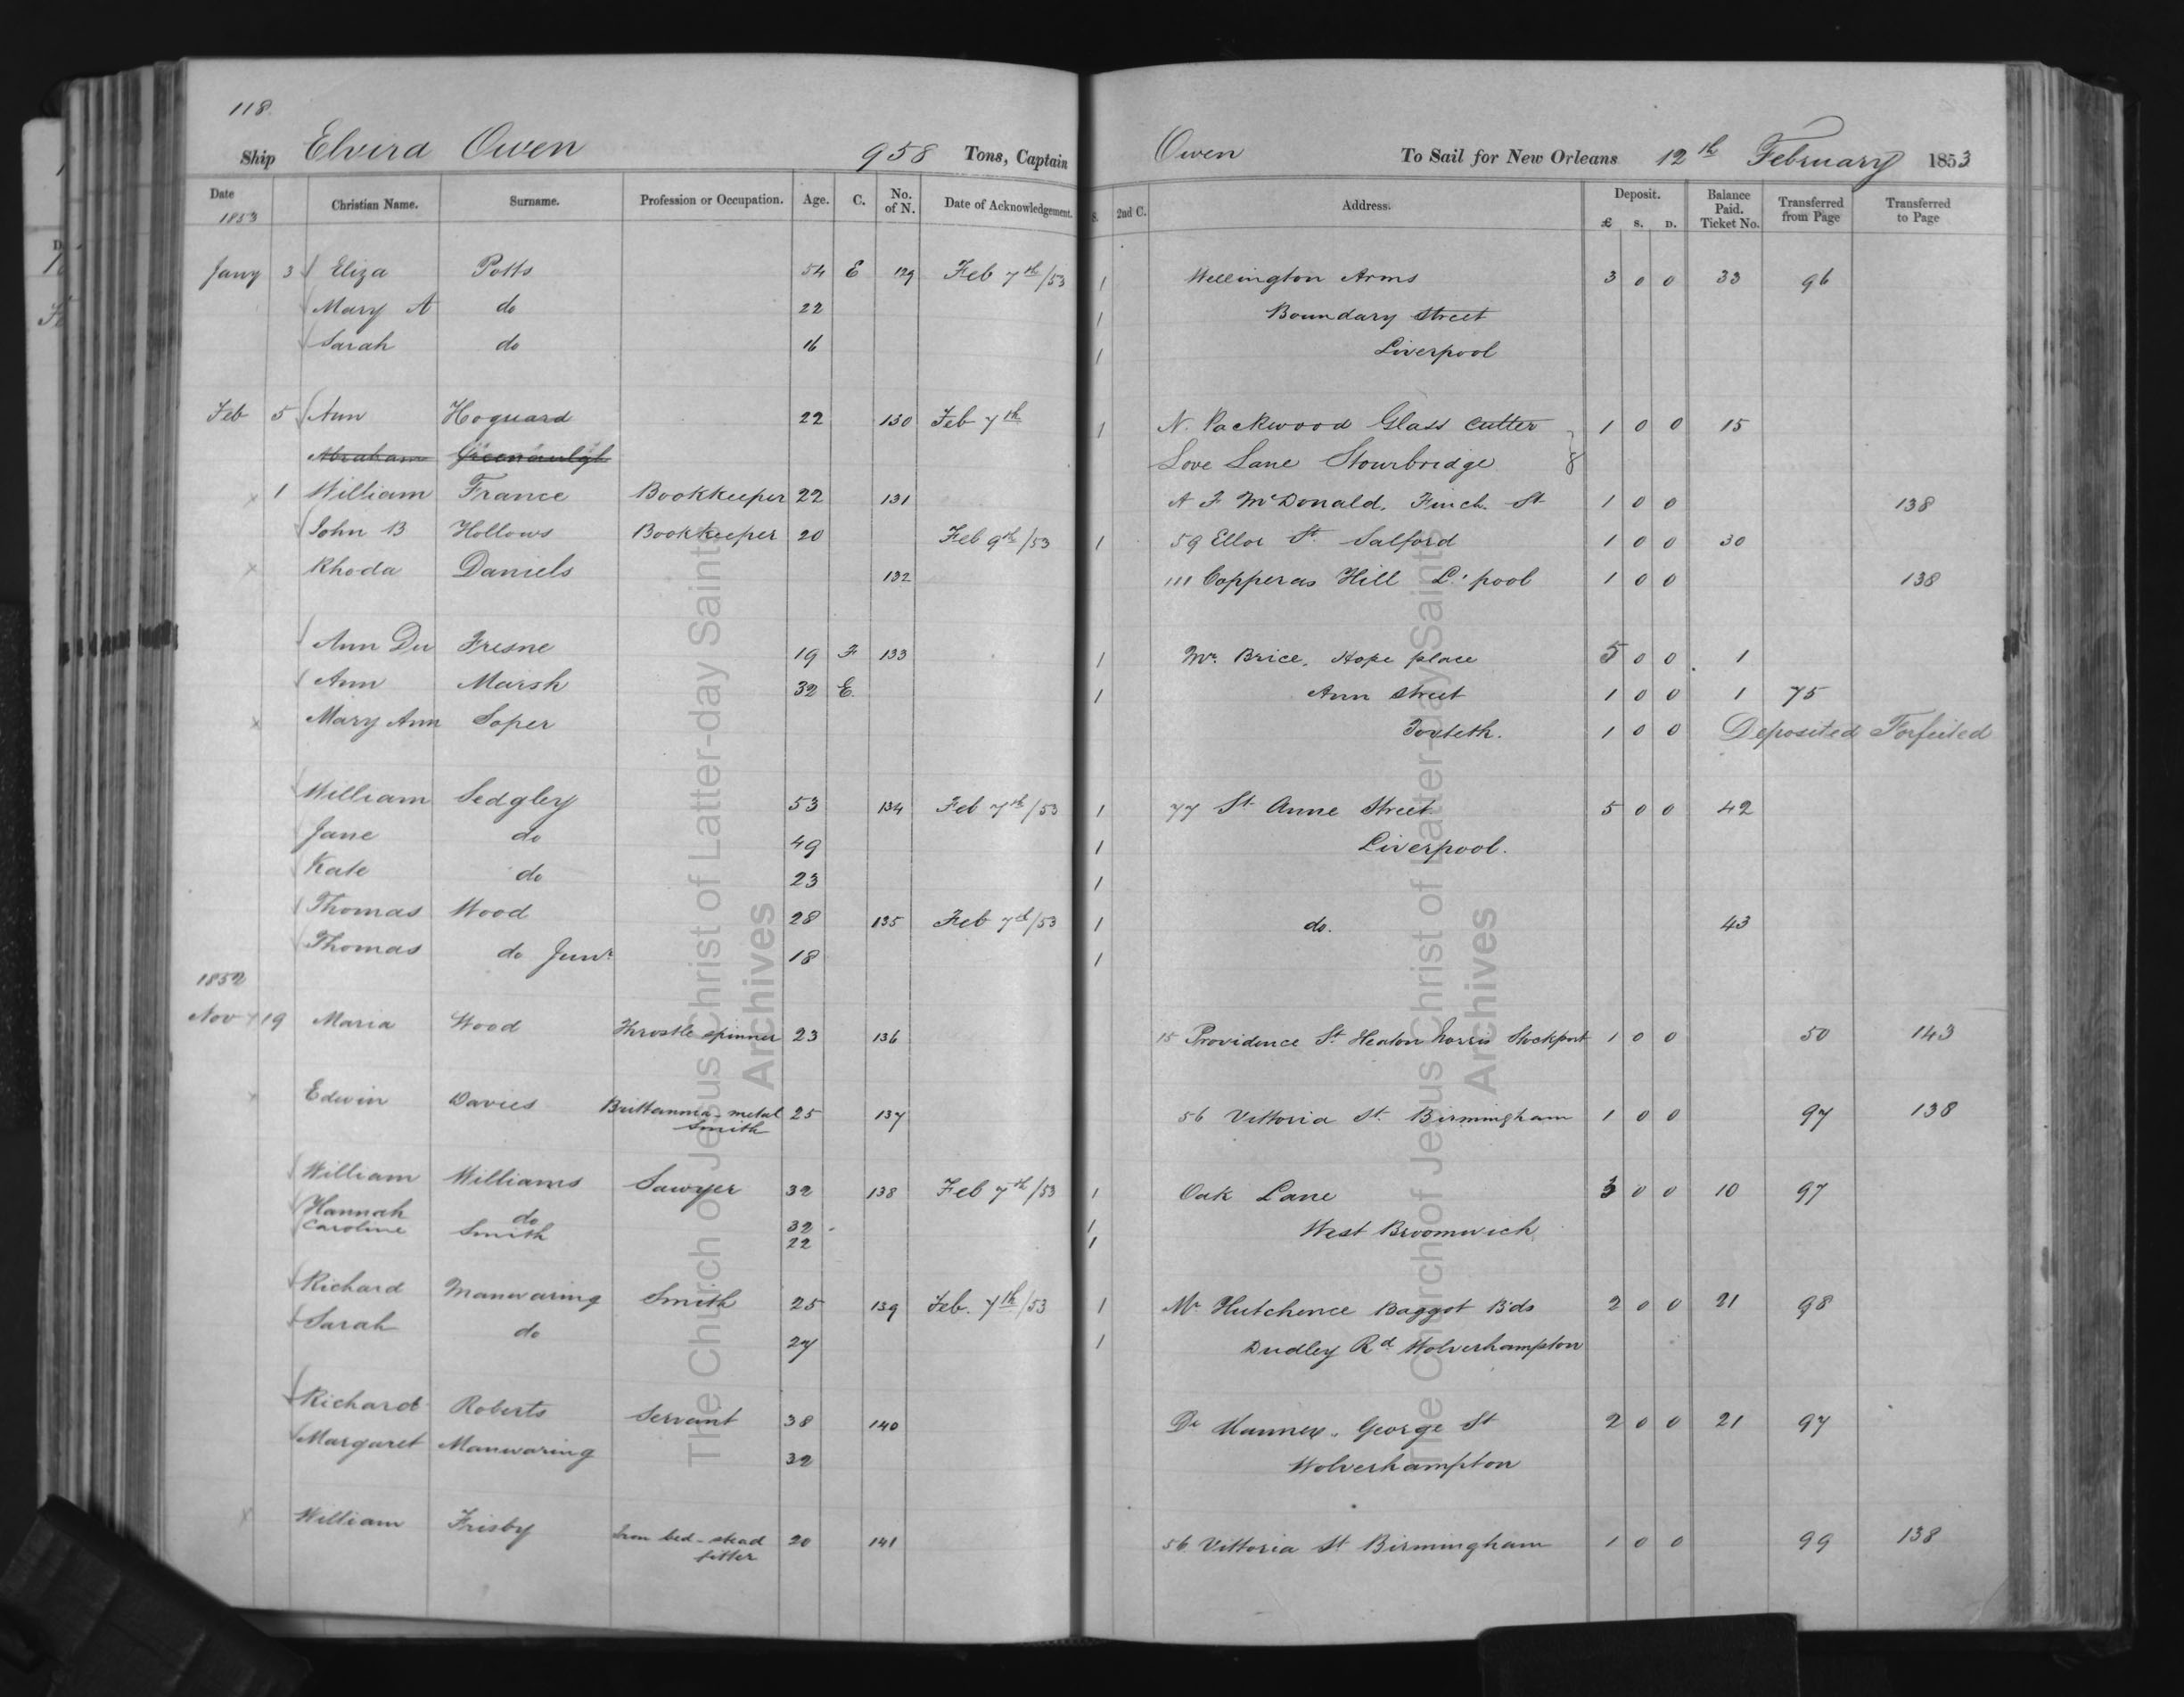 118
Ship Elvira Owen 958 Tons, Captain Owen To Sail for New Orleans 12th February 1853
Date 1853 Christian Name. Surname. Profession or Occupation. Age. C. No. of N. Date of Acknowledgement. S. 2nd C. Address. Deposit. £ S. D. Balance Paid. Ticket No. Transferred from Page Transferred to Page
Jany 3 Eliza Potts 54 E 129 Feb 7th/53 1 Wellington Arms 3 0 0 33 96
Mary A do 22 1 Boundary Street
Sarah do 16 1 Liverpool
Feb 5 Ann Hoguard 22 130 Feb 7th 1 N. Packwood Glass Cutter 1 0 0 15
Abraham Love Lane Stourbridge
x 1 William France Bookkeeper 22 131 A F McDonald, Finch. St 1 0 0 138
John B Hollows Bookkeeper 20 Feb 9th/53 1 59 Ellor St Salford 1 0 0 30
x Rhoda Daniels 132 111 Copperas Hill L'pool 1 0 0 138
Ann Du Fresne 19 F 133 1 Mr. Brice, Hope place 5 0 0 1
Ann Marsh 32 E. 1 Ann Street 1 0 0 1 75
x Mary Ann Soper Toxteth. 1 0 0 Deposited Forfeited
William Sedgley 53 134 Feb 7th/53 1 77 St Anne Street 5 0 0 42
Jane do 49 1 Liverpool.
Kate do 23 1
Thomas Wood 28 135 Feb 7th/53 1 do. 43
Thomas do Junr 18 1
1852
Nov x 19 Maria Wood Throstle spinner 23 136 15 Providence St Heaton Norris Stockport 1 0 0 50 143
x Edwin Davies Brittannia-metal Smith 25 137 56 Vittoria St Birmingham 1 0 0 97 138
William Williams Sawyer 32 138 Feb 7th/53 1 Oak Lane 3 0 0 10 97
Hannah do 32 1 West Broomwich
Caroline Smith 22 1
Richard Manwaring Smith 25 139 Feb. 7th/53 1 Mr Hutchence Baggot Bds 2 0 0 21 98
Sarah do 27 1 Dudley Rd Wolverhampton
Richard Roberts Servant 38 140 Dr George St 2 0 0 21 97
Margaret Manwaring 32 Wolverhampton
x William Frisby Iron bed-stead fitter 20 141 56 Vittoria St Birmingham 1 0 0 99 138
The Church of Jesus Christ of Latter-day Saints
Archives
The Church of Jesus Christ of Latter-day Saints
Archives